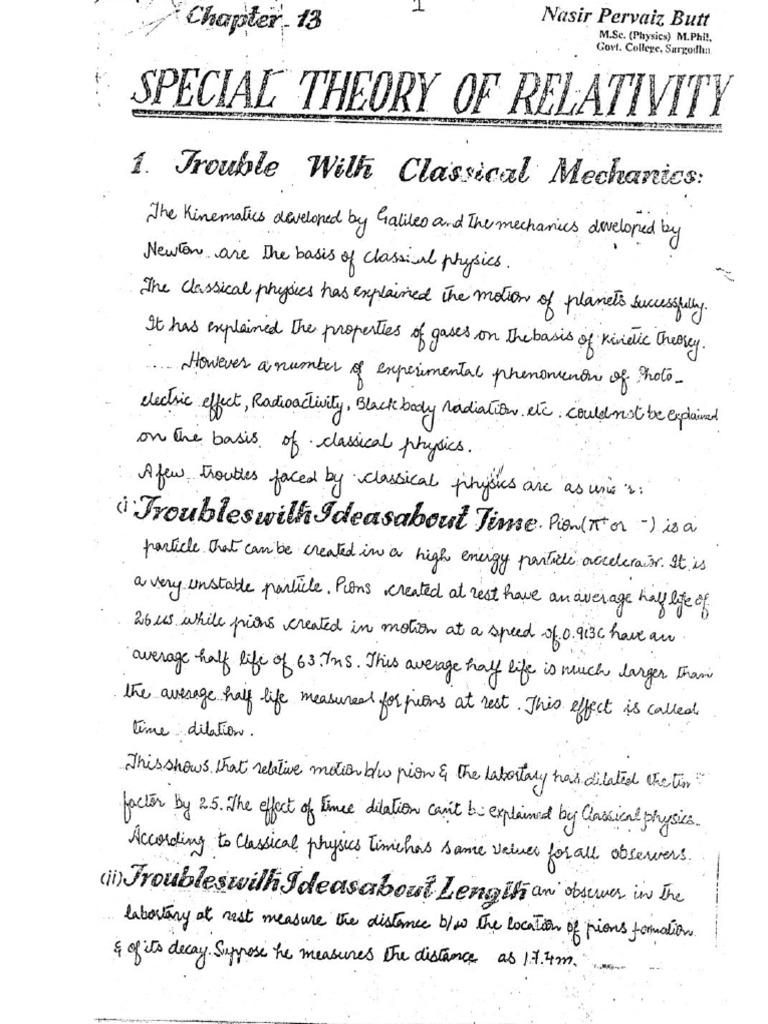 Chapter - 13
1
Nasir Pervaiz Butt
M.Sc. (Physics) M.Phil.
Govt. College, Sargodha
SPECIAL THEORY OF RELATIVITY
1. Trouble With Classical Mechanics:
The Kinematics developed by Galileo and the mechanics developed by
Newton are the basis of classical physics.
The Classical physics has explained the motion of planets successfully.
It has explained the properties of gases on the basis of Kinetic theorey.
.... However a number of experimental phenomenon of Photo-
electric effect, Radioactivity, Black body radiation etc. could not be explained
on the basis of classical physics.
A few troubles faced by classical physics are as
(i) Troubles with Ideas about Time. Pion (π+ or -) is a
particle that can be created in a high energy particle accelerator. It is
a very unstable particle. Pions created at rest have an average half life of
26 while pions created in motion at a speed of 0.913C have an
average half life of 63.7nS. This average half life is much larger than
the average half life measured for pions at rest. This effect is called
time dilation.
This shows that relative motion b/w pion & the labortary has dilated the
factor by 2.5. The effect of time dilation can't be explained by Classical physics.
According to Classical physics time has same values for all observers.
(ii) Troubles with Ideas about Length an observer in the
labortary at rest measure the distance b/w the location of pions formation
& of its decay. Suppose he measures the distance as 17.4m.